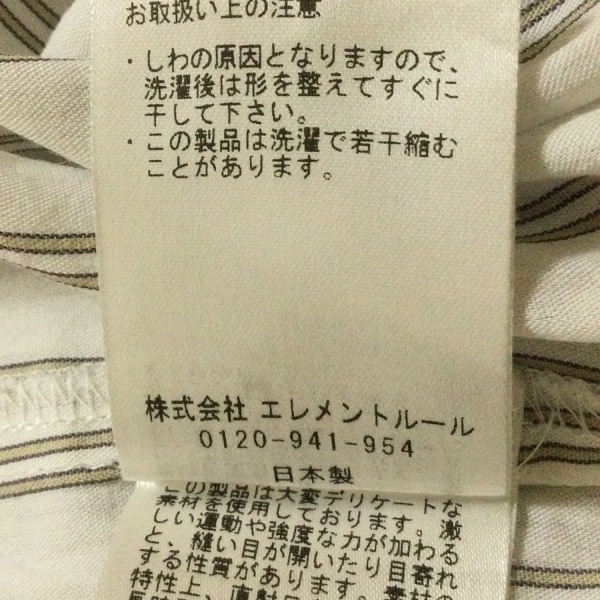 お取扱い上の注意
・しわの原因となりますので、
洗濯後は形を整えてすぐに
干して下さい。
・この製品は洗濯で若干縮む
ことがあります。
株式会社 エレメントルール
0120-941-954
日本製
この製品は大変デリケートな
素材を使用しております。激
しい運動や強度な力が加わる
と、縫い目が開いたり目寄れ
する性質があります。素材の
特性上、直射